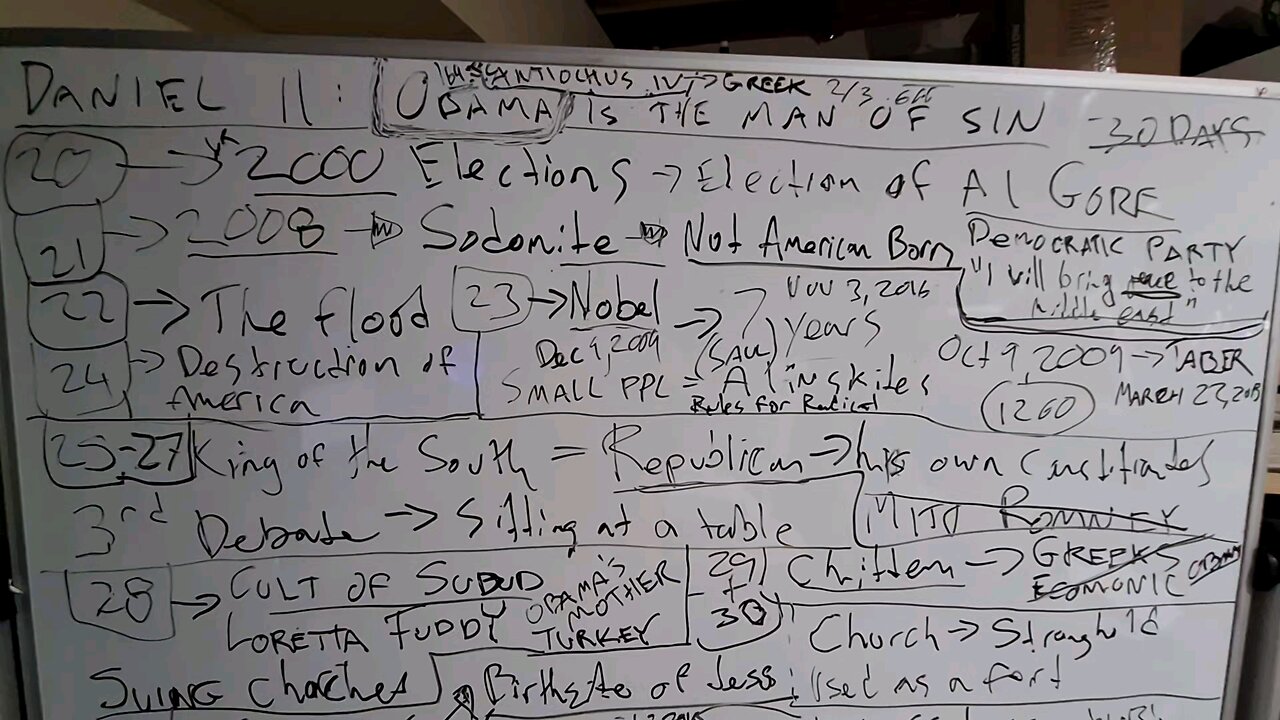 ANTIOCHUS IV → GREEK 2/3
DANIEL 11: OBAMA IS THE MAN OF SIN 30 DAYS
20 → 2000 Elections → Election of Al GORE
21 → 2008 → Sodomite → Not American Born
DEMOCRATIC PARTY
"I will bring peace to the
middle east"
22 → The flood
23 → Nobel → 7 years
Nov 3, 2016
Dec 9, 2009 (SAUL)
SMALL PPL = Alinskites
Rules for Radical
Oct 9, 2009 → TABER
1260 MARCH 27, 2013
24 → Destruction of
America
25-27 King of the South = Republican → his own Candidates
3rd Debate → Sitting at a table MITT ROMNEY
28 → CULT OF SUBUD
LORETTA FUDDY
OBAMA'S
MOTHER
TURKEY
29 + 30 Chittem → GREEKS
ECONOMIC
Church → Stronghold
SUING Churches Birthsite of Jess Used as a fort